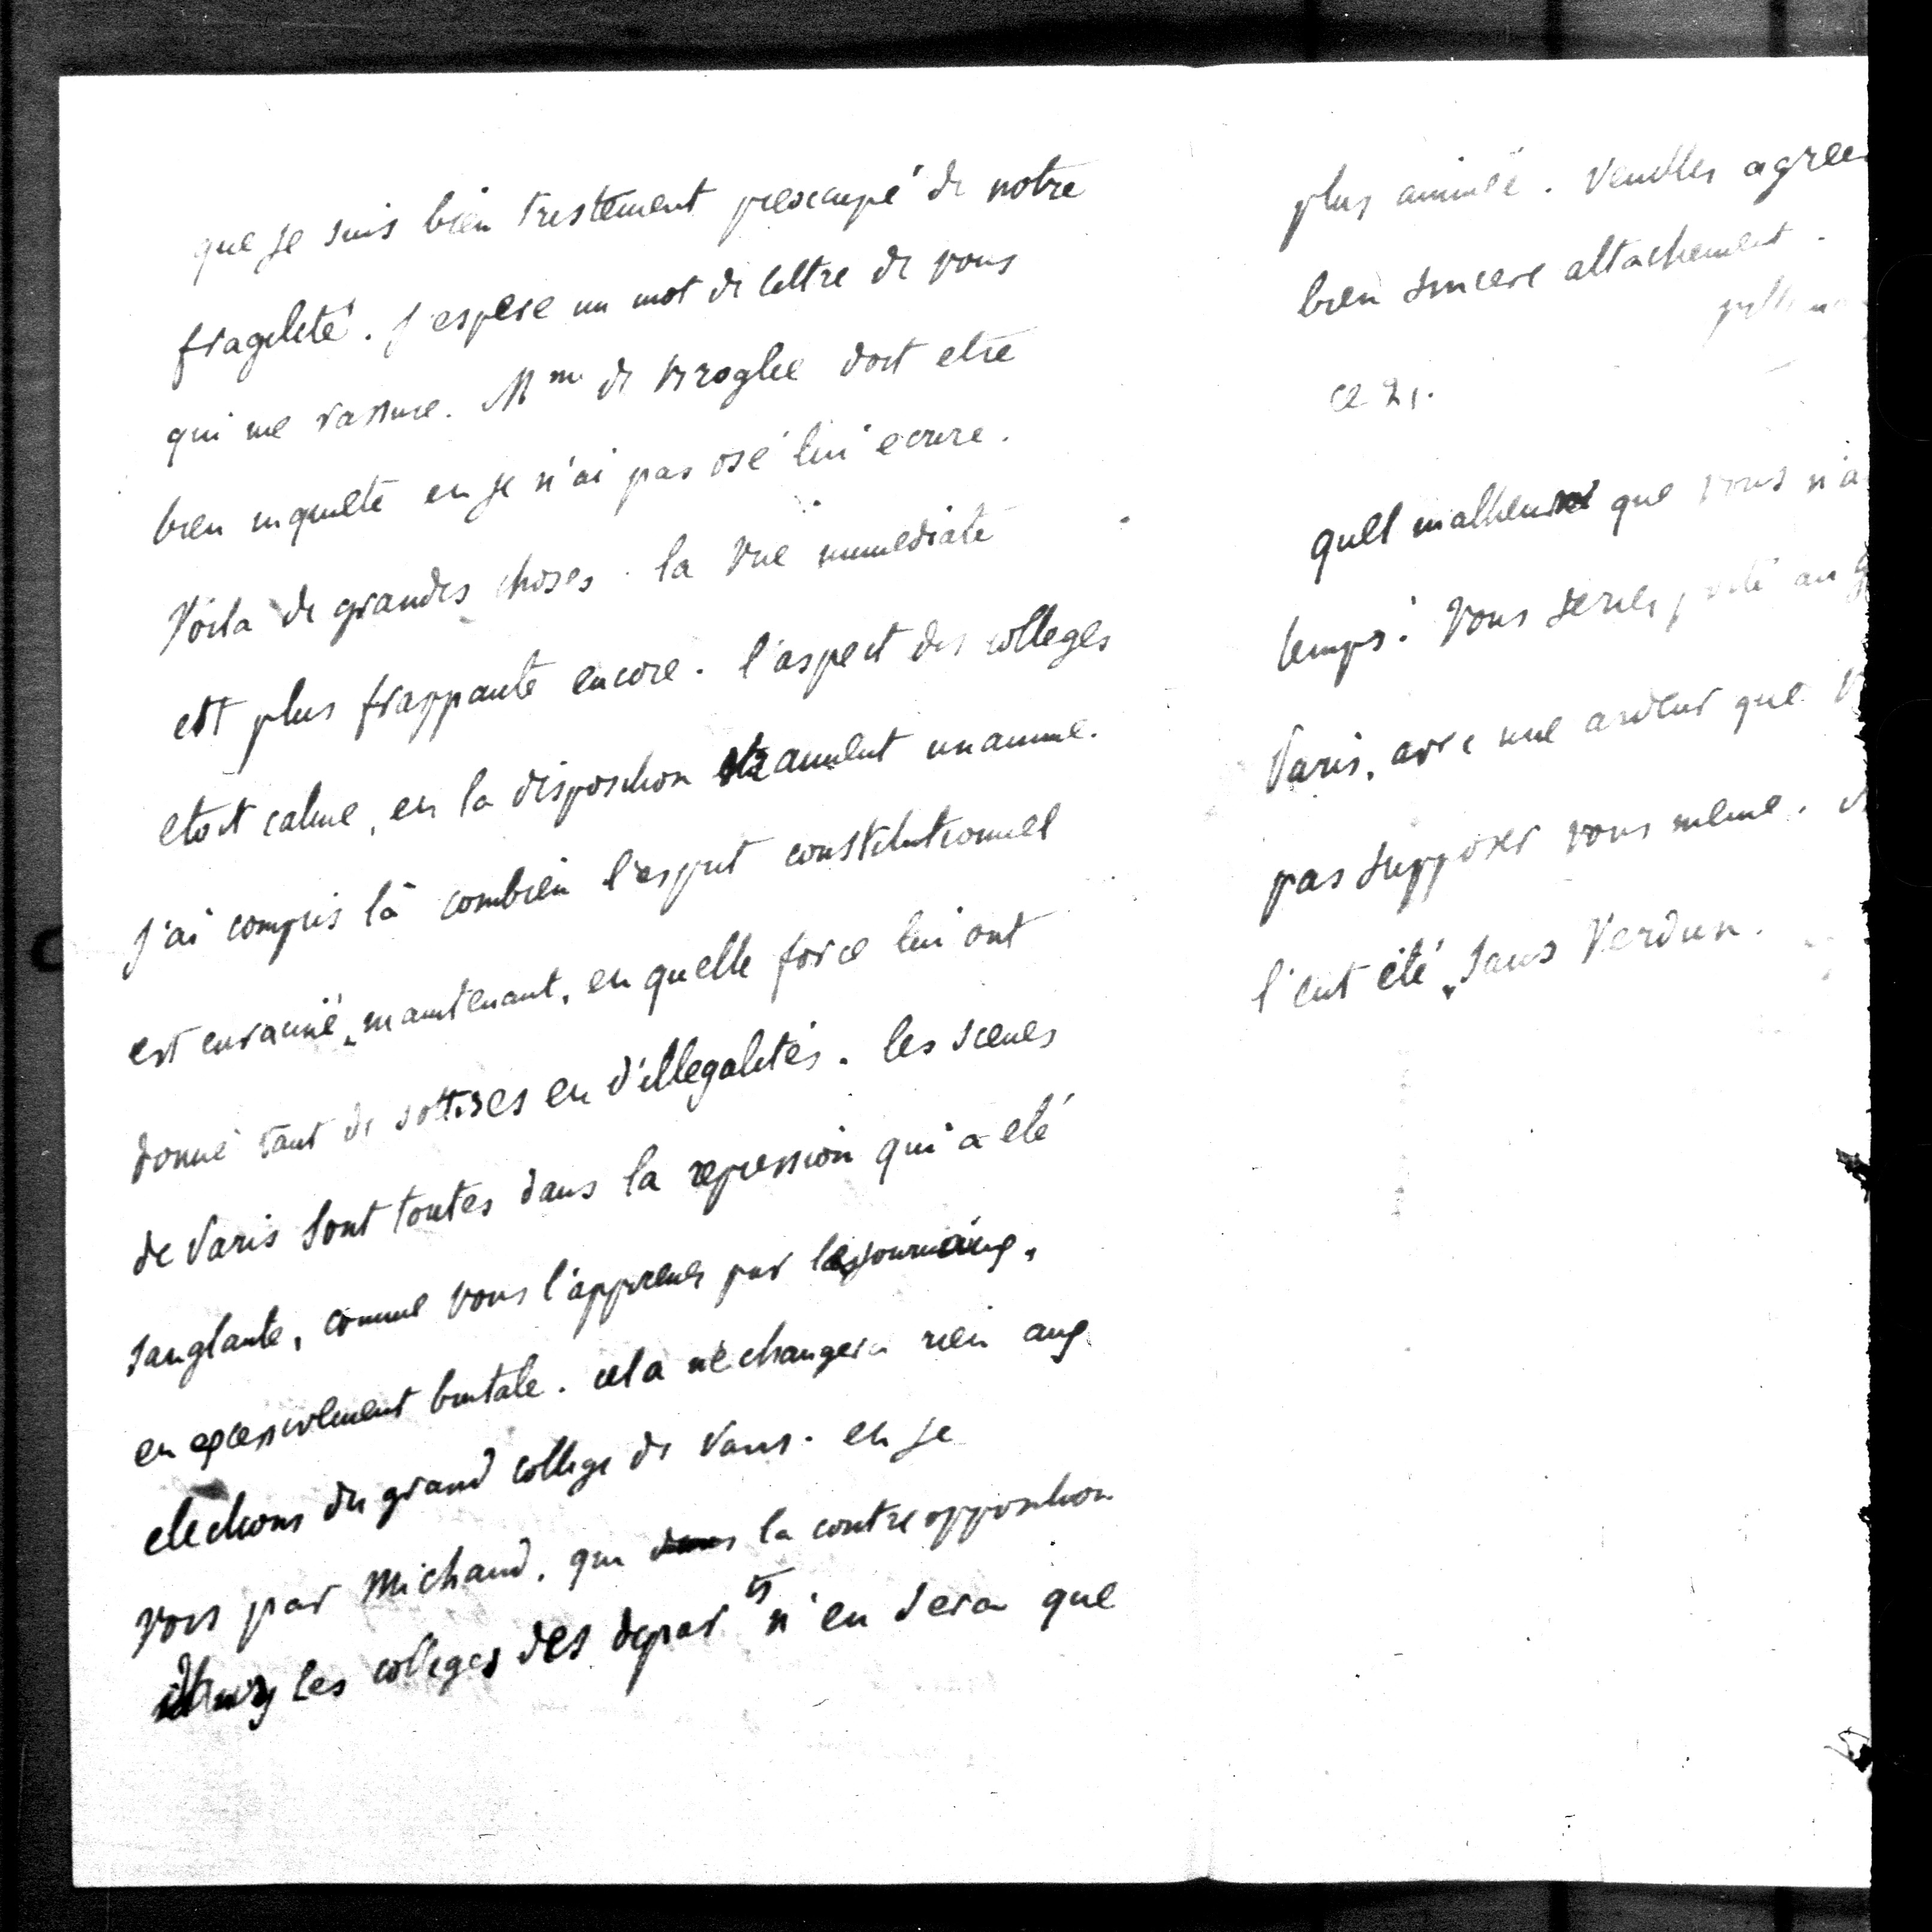 que je suis bien tristement préoccupé de notre
fragilité. j'espere un mot de lettre de vous
qui me rassure. Mme de Broglie doit etre
bien inquiete et je n'ai pas osé lui ecrire.
Voila de grandes choses. la vue immediate
est plus frappante encore. l'aspect des colleges
etoit calme, et la disposition unanime.
j'ai compris là combien l'esprit constitutionnel
est enraciné, maintenant, et quelle force lui ont
donné tant de sottises et d'illegalités. les scenes
de Paris sont toutes dans la repression qui a eté
sanglante, comme vous l'apprenez par les journaux,
et excessivement brutale. cela ne changera rien aux
elections du grand college de Paris. et je
vois par Michaud, que dans la contre opposition
les colleges des depar ts n'en sera que
plus animée. Veuillez agréer
bien sincere attachement.
ce 21.
quel malheur que vous n'a
temps! Vous seriez porté au g
Paris, avec une ardeur que
pas supposer vous même.
l'eut été, sans Verdun.